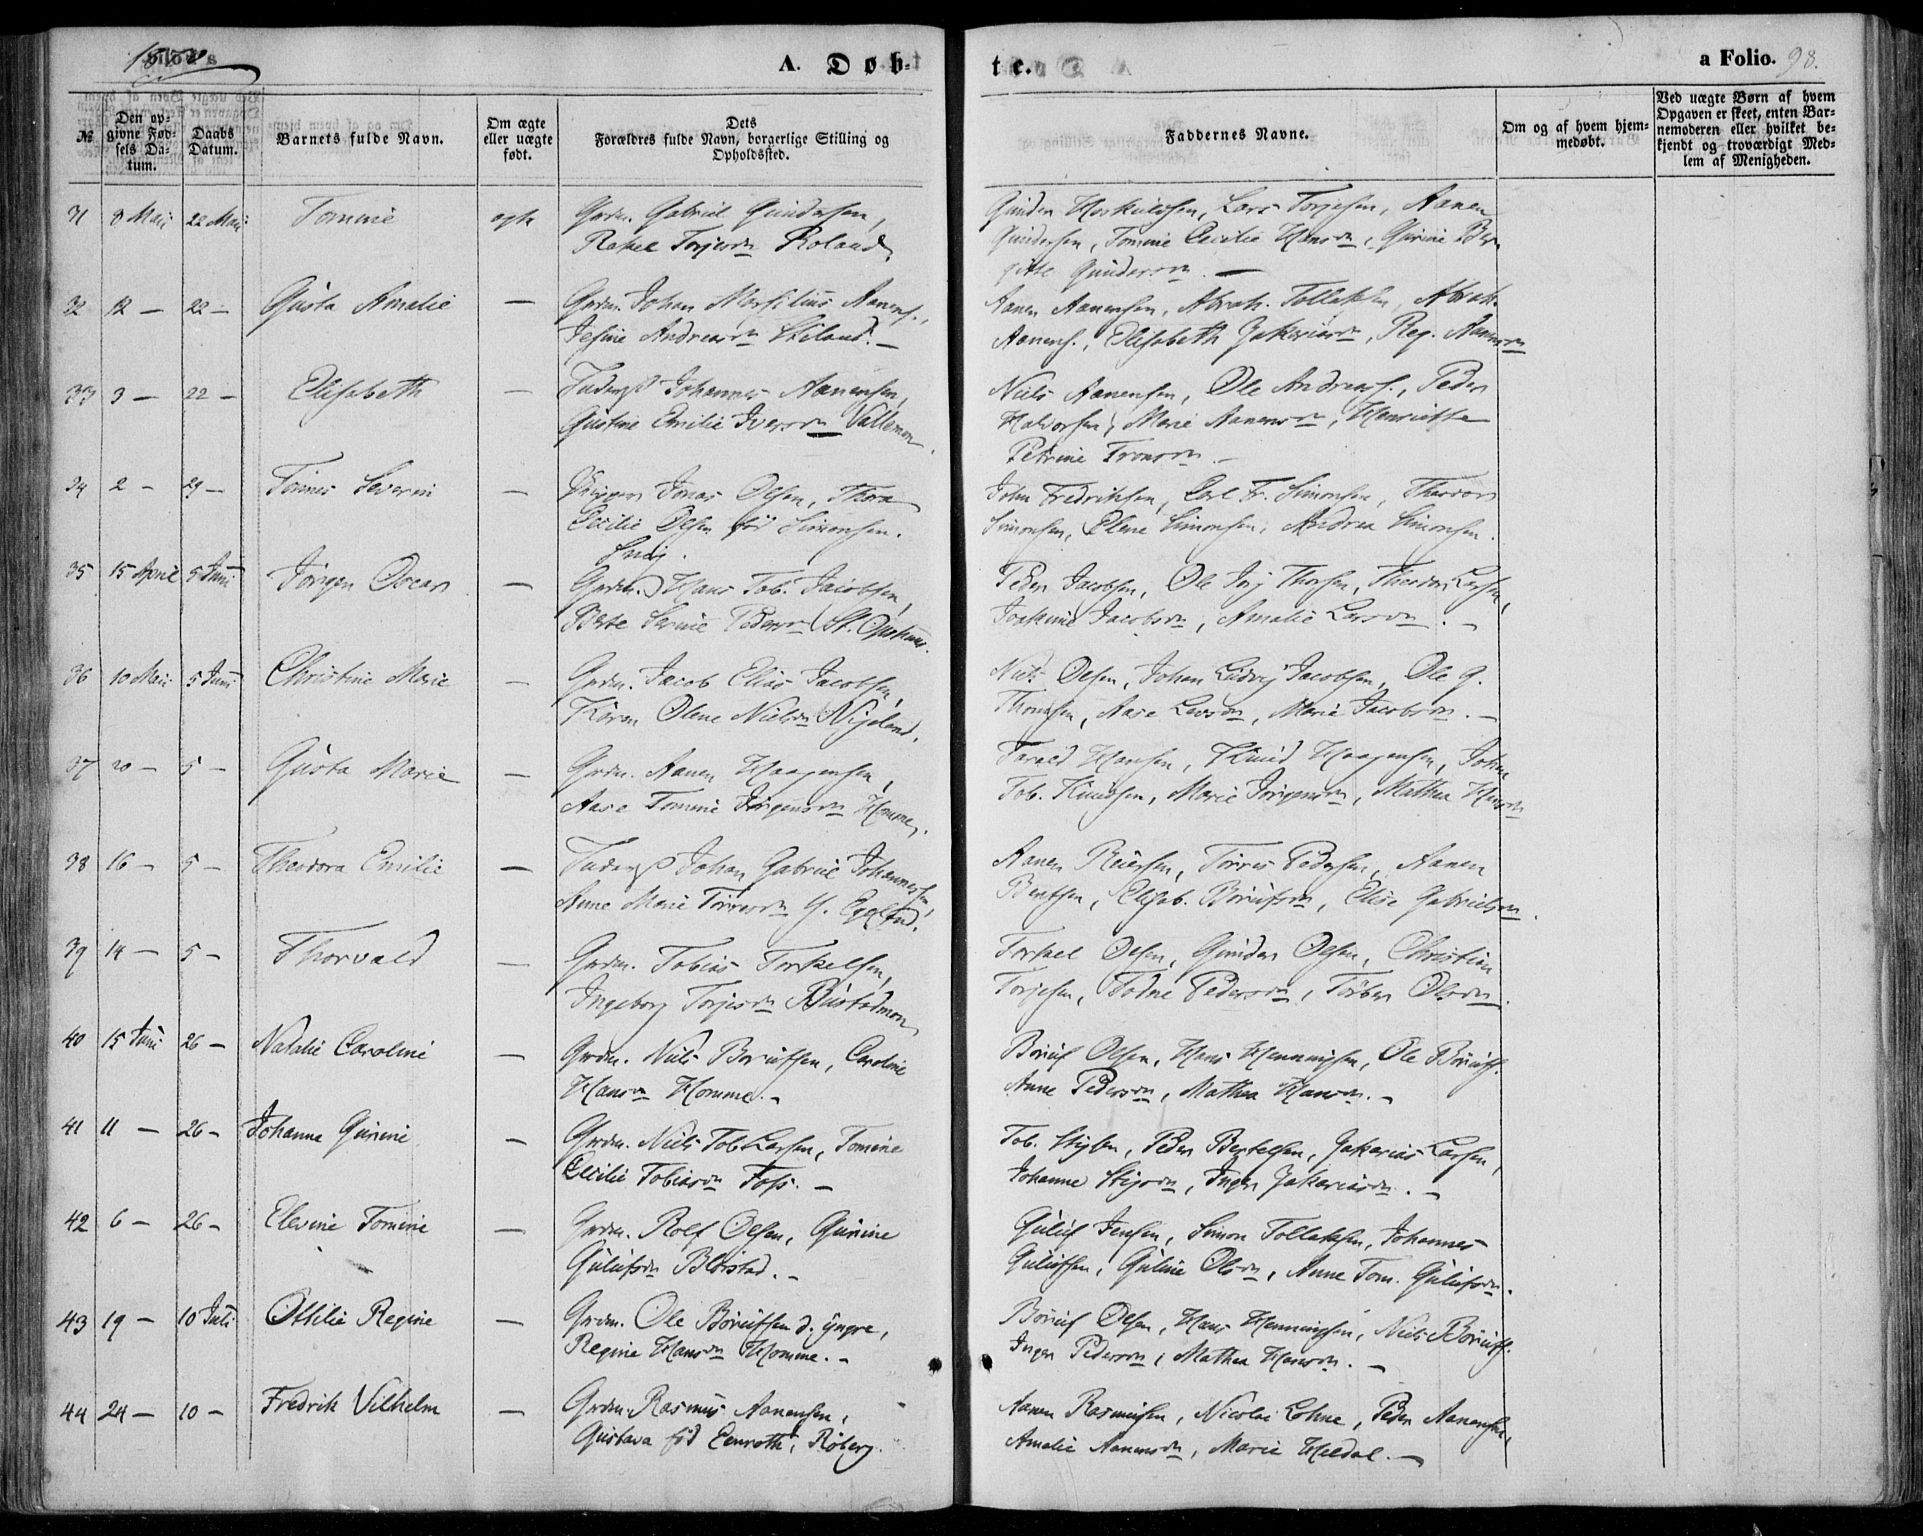 A. Døb-
te.
a Folio. 98.
№
Den op-
givne Fød-
sels Da-
tum.
Daabs
Datum.
Barnets fulde Navn.
Om ægte
eller uægte
født.
Dets
Forældres fulde Navn, borgerlige Stilling og
Opholdssted.
Faddernes Navne.
Om og af hvem hjem-
medøbt.
Ved uægte Børn af hvem
Opgaven er skeet, enten Bar-
nemoderen eller hvilket be-
kjendt og troværdigt Med-
lem af Menigheden.
31 8 Maii 22 Maii Tomine ægte Grdm. Gabriel Gundersen,
Rakel Torjesdn Roland
Gunder Hoskuldsen, Lars Torjesen, Aanen
Gundersen, Tomine Cecilie Hansdn, Gurine Ber
gitte Gundersdn. —
32 12 — 22 — Gusta Amalie — Grdm. Johan Marsilius Aanens.,
Jesine Andreasdn. —
Aanen Aanensen, Abrah. Tollaksen, Abrah.
Aanens., Elisabeth Zakariasdn, Reg. Aanensdn
33 3 — 22 — Elisabeth — Johannes Aanensen,
Gustine Emilie Iversdn Vallemon
Niels Aanensen, Ole Andreas., Peder
Halvorsen, Marie Aanensdn, Henriette
Petrine Tronsdn —
34 2 — 29 — Tønnes Severin — Jonas Olsen, Thora
Cecilie Olsen fød Simonsen.
John Fredriksen, Carl Fr. Simonsen, Theodor
Simonsen, Olene Simonsen, Andrea Simonsen.
35 15 April 5 Juni Jørgen Oscar — Grdm. Hans Tob. Jacobsen,
Berte Serine Pedersdn St.
Peder Jacobsen, Ole Jørg Thorsen, Theodor Larsen,
Joakime Jacobsdn, Amalie Larsdn. —
36 10 Maii 5 Juni Christine Marie — Grdm. Jacob Elias Jacobsen,
Karen Olene Nielsdn Nigeland.
Niels Olsen, Johan Ludvig Jacobsen, Ole G.
Thomsen, Aase Larsdn, Marie Jacobsdn. —
37 20 — 5 — Gusta Marie — Grdm. Aanen Haagensen,
Aase Tomine Jørgensdn Homme.
Tarald Hansen, Knud Haagensen, Johan
Tob. Knudsen, Marie Jørgensdn, Mathea Hansdn
38 16 — 5 — Theodora Emilie — Johan Gabriel Johannessen,
Anne Marie Tørresdn Y. Egeland.
Aanen Reiersen, Tørres Pedersen, Aanen
Bentsen, Elisab. Børufsdn, Elise Gabrielsdn.
39 14 — 5 — Thorvald — Grdm. Tobias Torkelsen,
Ingeborg Torjesdn Bustadmon
Torkel Olsen, Gunder Olsen, Christian
Torjesen, Todne Pedersdn, Torbør Olsdn.
40 15 Juni 26 — Natalie Caroline — Grdm. Niels Børufsen, Caroline
Hansdn Homme. —
Børuf Olsen, Hans Henningsen, Ole Børufs.
Anne Pedersdn, Mathea Hansdn. —
41 11 — 26 — Johanne Gurine — Grdm. Niels Tob. Larsen, Tomine
Cecilie Tobiasdn Foss. —
Tob. Stigsen, Peder Bertelsen, Zakarias Larsen,
Johanne Stigsdn, Inger Zakariasdn. —
42 6 — 26 — Elevine Tomine — Grdm. Rolf Olsen, Gurine
Gulufsdn Bløistad. —
Guluf Jensen, Simon Tollaksen, Johannes
Gulufsen, Guline Olsdn, Anne Tom. Gulufsdn.
43 19 — 10 Juli Ottilie Regine — Grdm. Ole Børufsen d. yngre,
Regine Hansdn Homme. —
Børuf Olsen, Hans Henningsen, Niels Børufs.
Inger Pedersdn, Mathea Hansdn. —
44 24 — 10 — Fredrik Vilhelm — Grdm. Rasmus Aanensen,
Gustava fød Eenroth, Røberg.
Aanen Rasmusen, Nicolai Lohne, Peder Aanensen,
Amalie Aanensdn, Marie Hildal. —